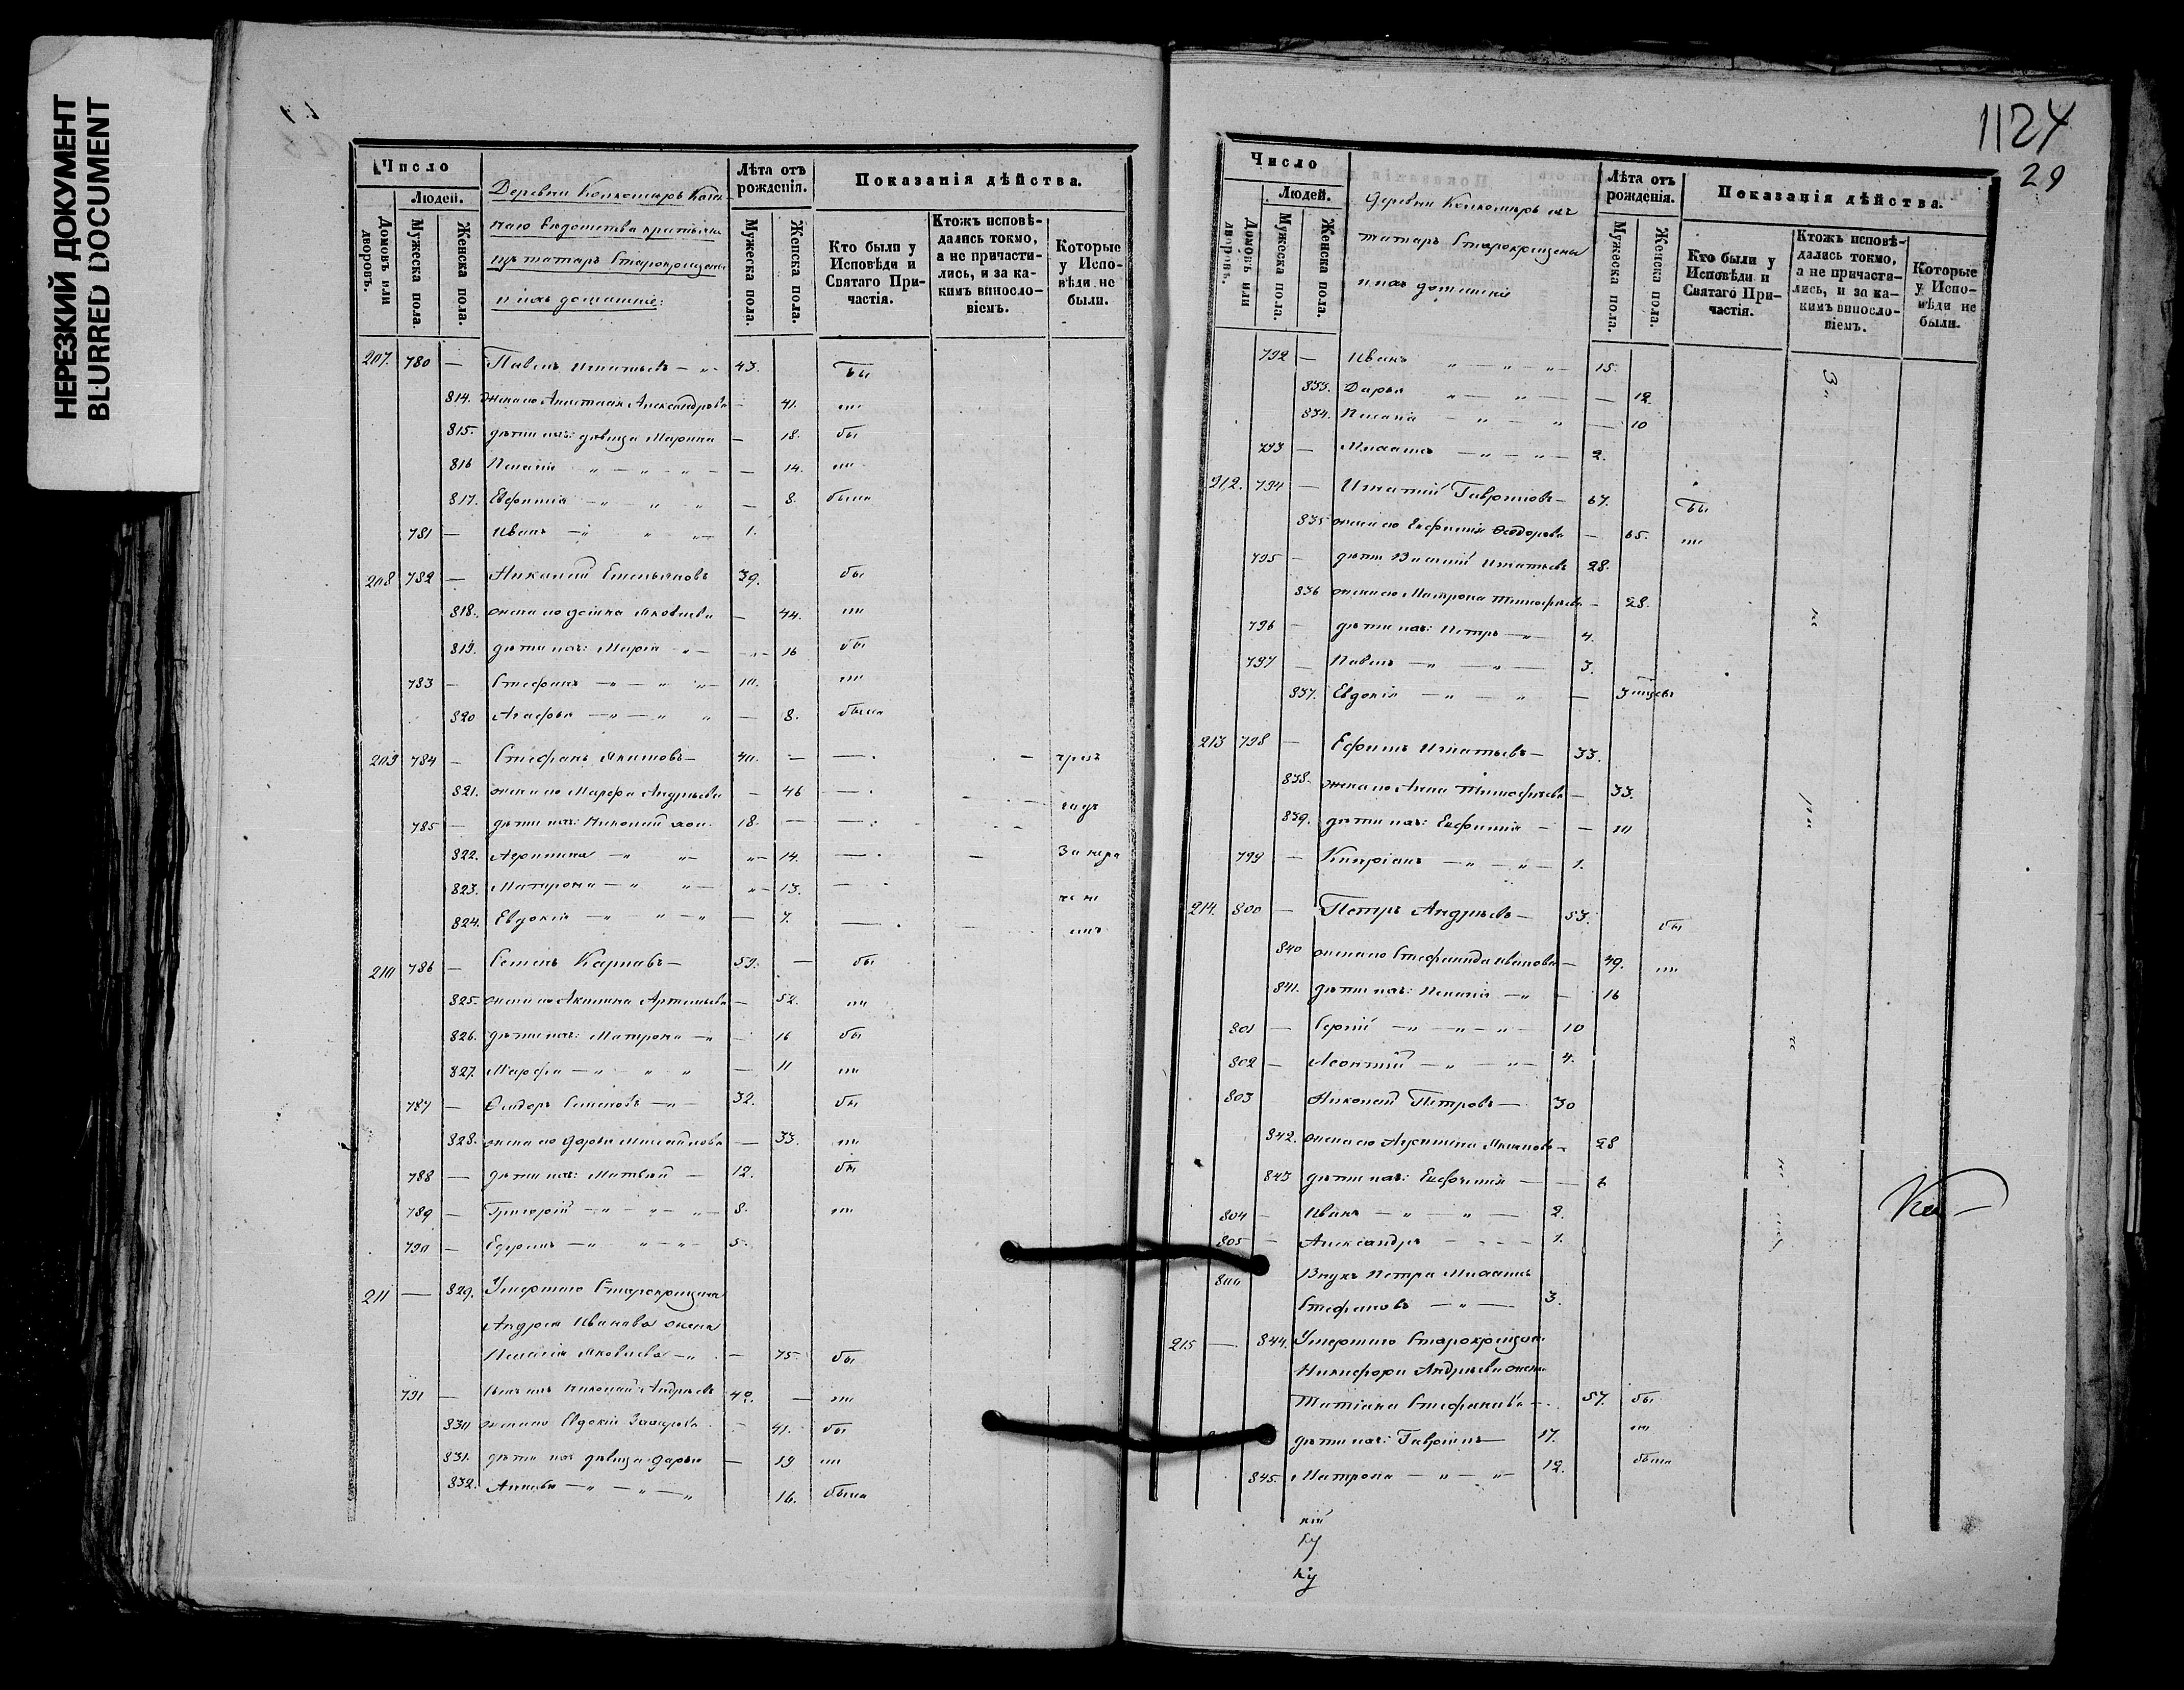 НЕРЕЗКИЙ ДОКУМЕНТ
BLURRED DOCUMENT
Число
Людей.
Домовъ или дворовъ.
Мужеска пола.
Женска пола.
Деревни
вѣдомства
изъ татаръ Старокрещены
и ихъ домашніе:
Лѣта отъ рожденія.
Мужеска пола.
Женска пола.
Показанія дѣйства.
Кто были у Исповѣди и Святаго При-частія.
Ктожъ исповѣ-дались токмо, а не причасти-лись, и за ка-кимъ винословіемъ.
Которые у Испо-вѣди не были.
207. 780 — Павелъ Игнатьевъ — 43. бы
814. жена его Анастасія Александрова — 41. ли
815. дѣти ихъ: дѣвица Марина — 18. бы
816 Пелагія — 14. ли
817. Евфимія — 8. была
781 — Иванъ — 1.
208 782 — Николай Емельяновъ 39. бы
818. жена его Домна Яковлева — 44. ли
819. дѣти ихъ: Марія — 16 бы
783 — Стефанъ — 10. ли
820 Агафья — 8. была
209 784 — Стефанъ Якимовъ — 40. — чрезъ
821. жена его Марфа Андреева — 46
785 — дѣти ихъ: Николай 18.
822. Агрипина — 14. За пере
823. Матрона — 13.
824. Евдокія — 7.
210 786 — Семенъ Карповъ — 59. — бы
825. жена его Акилина Артемьева — 52. ли
826. дѣти ихъ: Матрона — 16 бы
827. Марфа — 11 ли
787 — Ѳедоръ Семеновъ — 32. бы
828. жена его Дарья Михайлова — 33. ли
788 — дѣти ихъ: Матвей — 12. бы
789 — Григорій — 8. ли
790 — Ефремъ — 5.
211 — 829. Умершаго Старокрещена
Андрея Иванова жена
Пелагія Яковлева — 75 бы
791 — сынъ ихъ Николай Андреевъ 42. — ли
830 жена его Евдокія Захарова — 41. бы
831. дѣти ихъ дѣвица Дарья — 19 ли
832. 16. была
1124
29
Число
Людей.
Домовъ или дворовъ.
Мужеска пола.
Женска пола.
Деревни
татаръ Старокрещены
и ихъ домашніе
Лѣта отъ рожденія.
Мужеска пола.
Женска пола.
Показанія дѣйства.
Кто были у Исповѣди и Святаго При-частія.
Ктожъ исповѣ-дались токмо, а не причасти-лись, и за ка-кимъ винословіемъ.
Которые у Испо-вѣди не были.
792 — Иванъ — 15.
833. Дарья — 12
834. Пелагія — 10
793 — 2.
212. 794 — Игнатій Гавриловъ — 67. бы
835 жена его Евфимія Ѳеодорова — 65. ли
795 — дѣти Василій Игнатьевъ 28.
836 жена его Матрона Тимофеева — 28.
796 — дѣти ихъ: Петръ — 4.
797 — Павелъ — 3.
837. Евдокія —
213 798 — Ефимъ Игнатьевъ — 33.
838. жена его Анна Тимофеева — 33.
839. дѣти ихъ: Евфимія — 10
799 — Кипріанъ — 1.
214. 800 — Петръ Андреевъ — 53. бы
840 жена его Стефанида Иванова — 49. ли
841. дѣти ихъ: Пелагія — 16
801 — Сергій — 10
802 — Леонтій — 4.
803 Николай Петровъ — 30
842. жена его Агрипина 28
843 дѣти ихъ: Евфимія — 6
804 — Иванъ — 2.
805 — Александръ — 1.
Внукъ Петра
Стефановъ — 3.
215 — 844. Умершаго Старокрещена
Никифора Андреева жена
Татіана Стефанова — 57. бы
дѣти ихъ: Гавріилъ — 17. ли
845. Матрона — 12. была